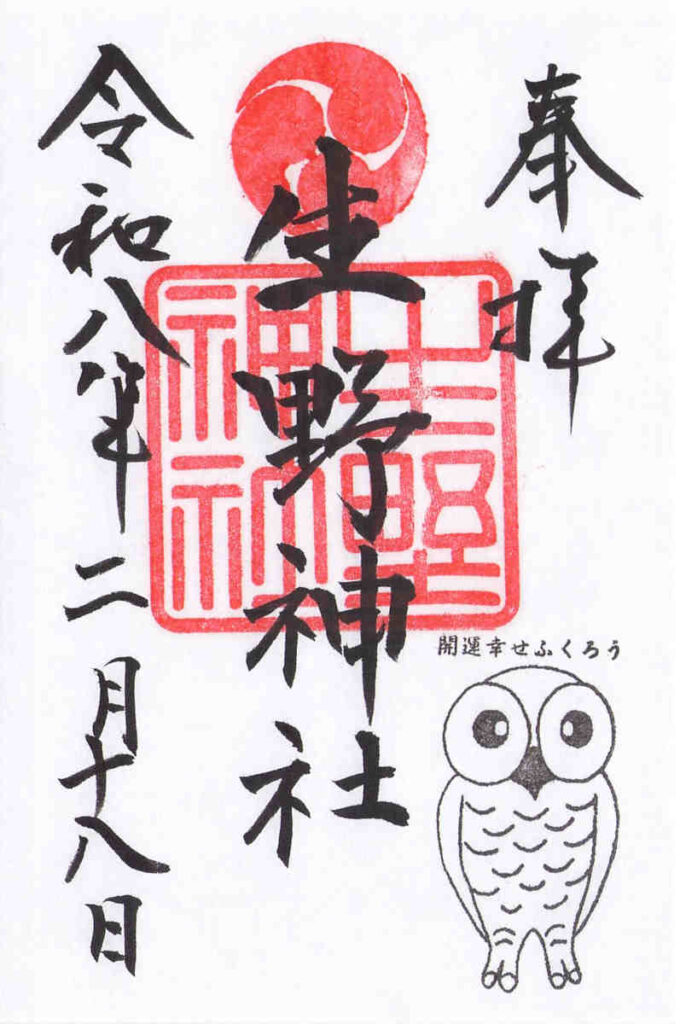 奉拝
生野神社
生野神社
令和八年二月十八日
開運幸せふくろう